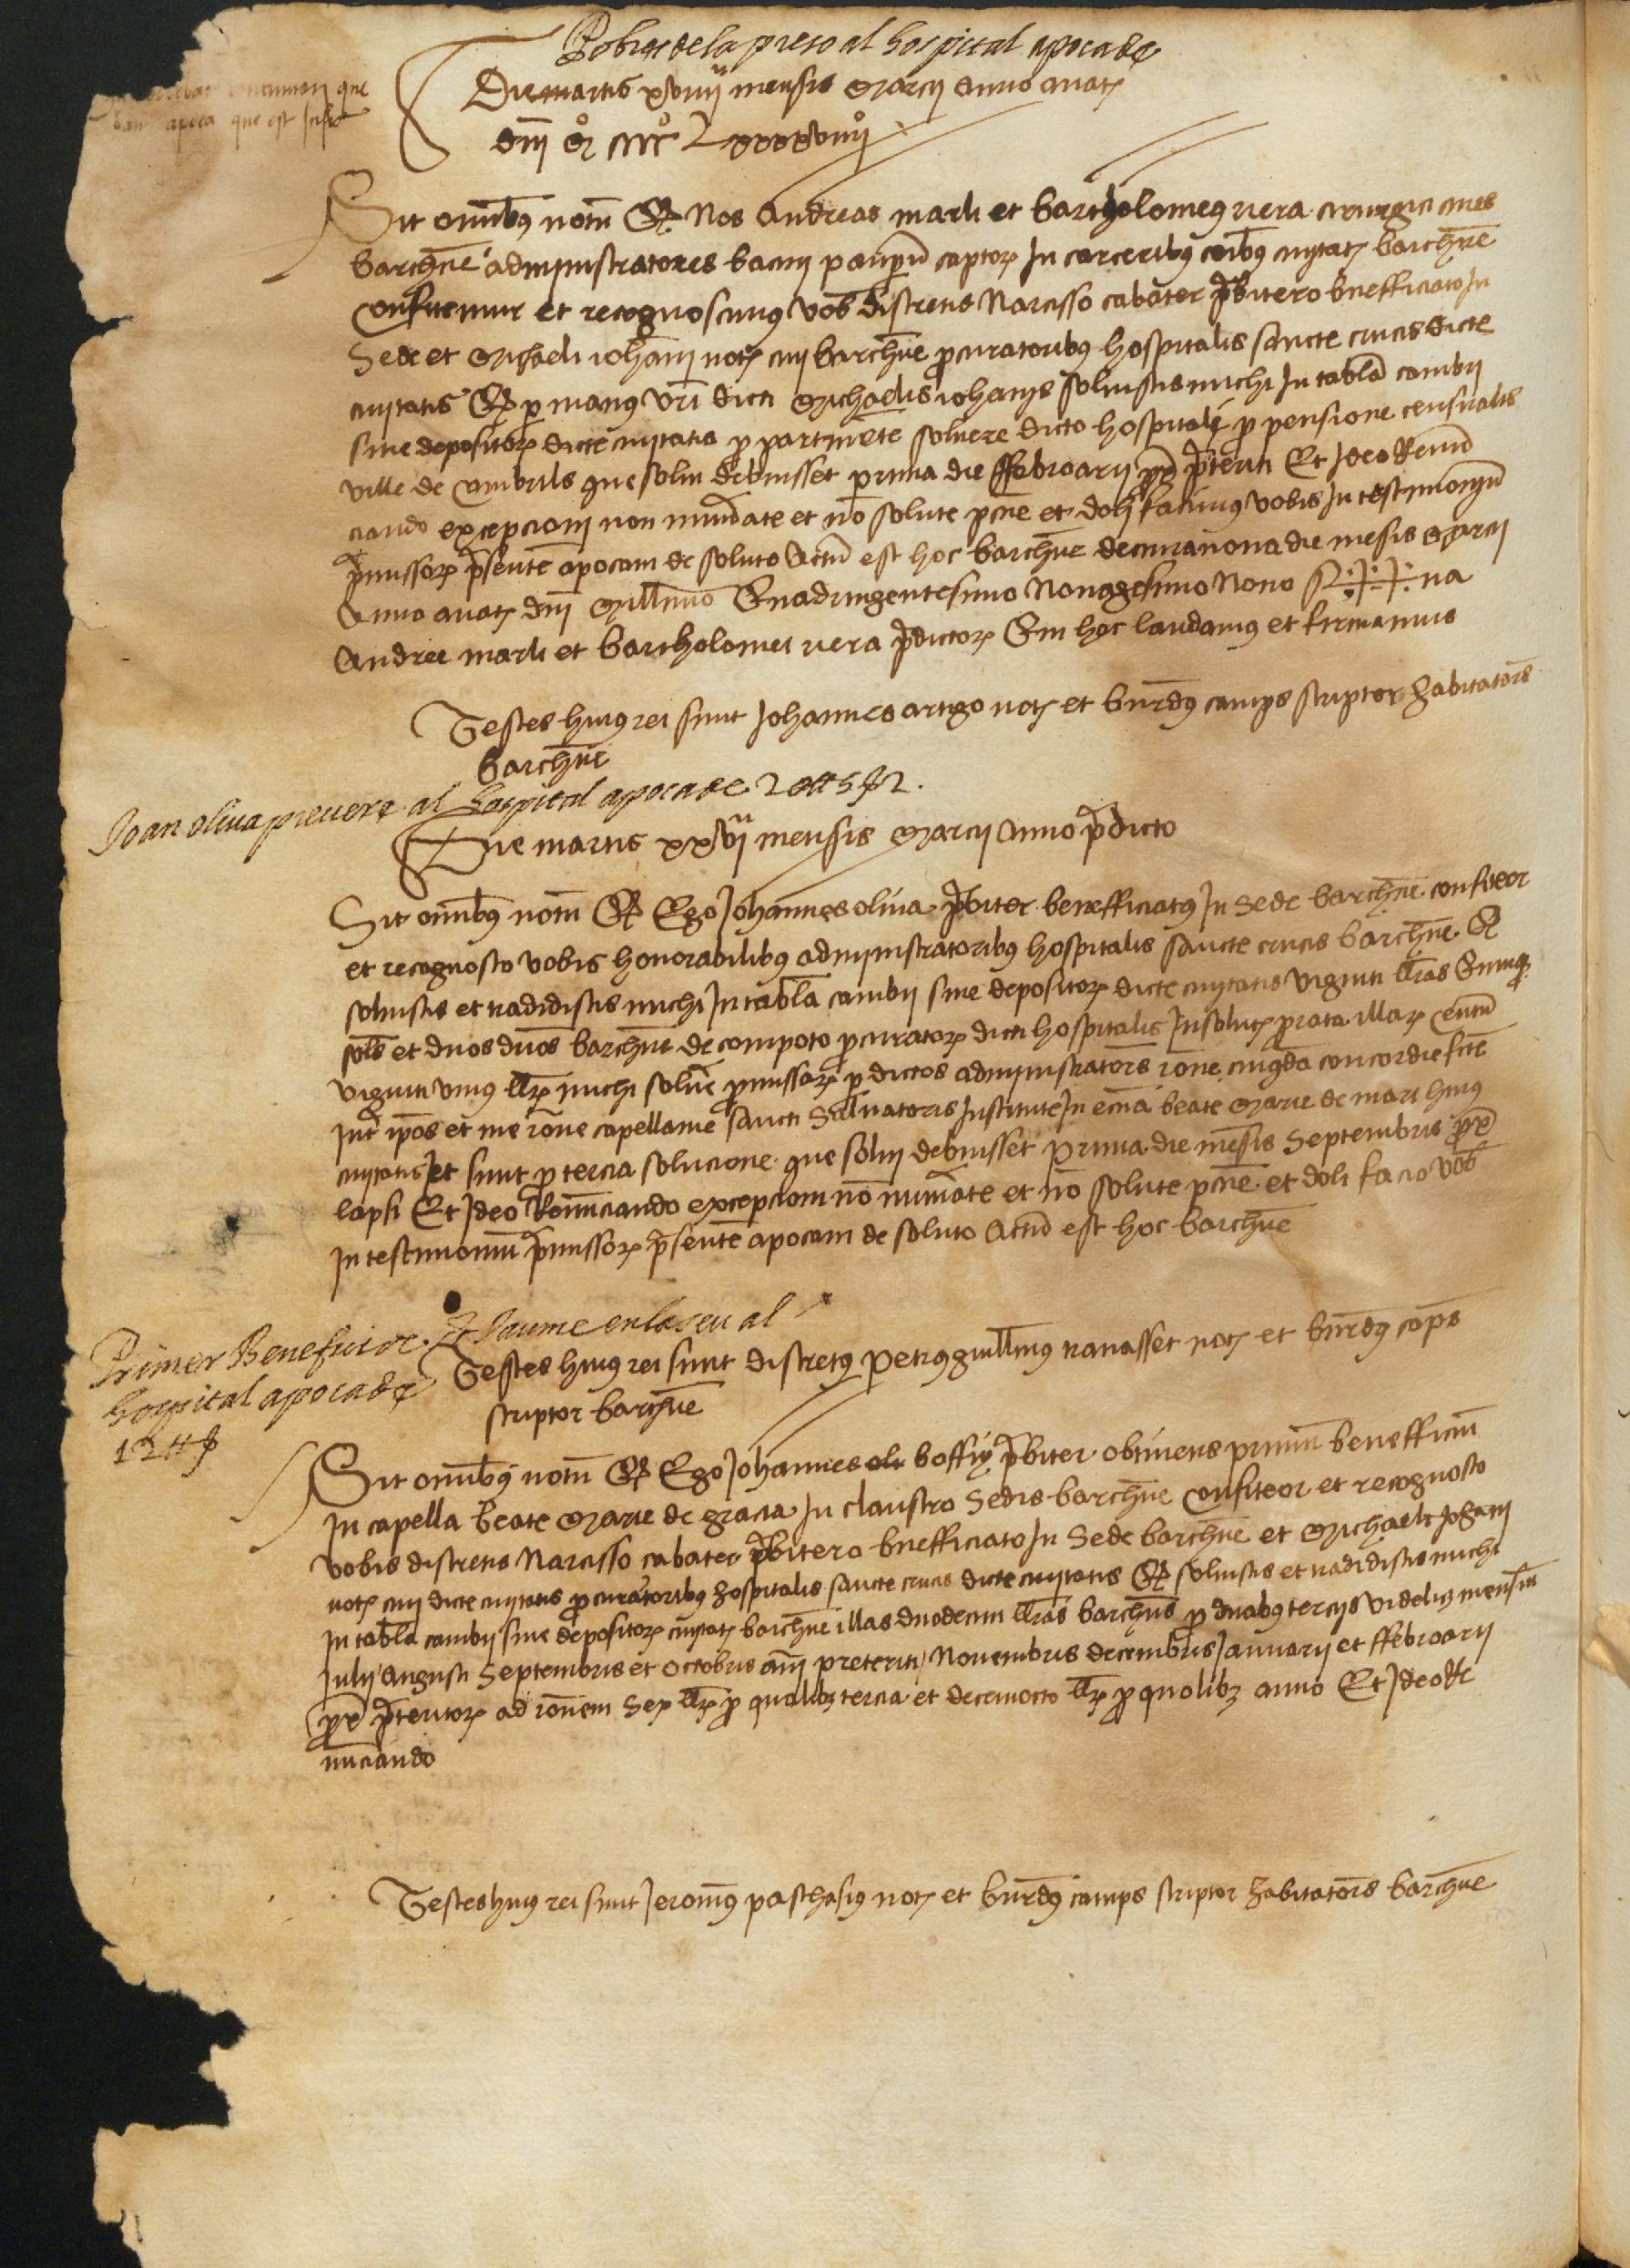 Pobres de la preso al hospital apoca de
que
apoca que est
Die martis xviiij mensis Marcij Anno a nat
dnj Mº CCCCº Lxxxxviiijº
Sit omnibus notu Q Nos Andreas marti et bartholomeus vera cirurgici cives
barchne administratores bacini pauperu captor In carceribus coibus civitat barchne
confitemur et recognoscimus vobis discretis Narcisso cabater pbitero benefficiato In
Sede et Michaeli iohanj not civi barchne procuratoribus hospitalis sancte crucis dicte
civitatis Q per manus vri dicti Michaelis iohanis solvistis michi In tabla cambij
sive depositor dicte civitatis solvere dicto hospitali pro pensione censualis
ville de que solvi debuisset prima die ffebroarij prox preteriti Et Ideo Renun
ciando excepcioni non numerate et no solute pecunie et doli facimus vobis In testimoniu
premissor presente apocam de soluto Actu est hoc barchne decimanona die mensis Marcij
Anno a nat dnj Millimo Quadringentesimo Nonagesimo Nono S na
Andree marti et bartholomei vera predictor Qui hec laudamus et firmamus
Testes huius rei sunt Johannes artigo not et burdus camps scriptor habitatores
barchne
Joan oliva prevere al hospital apoca de 20 ll 5 s 2.
Die martis xxvj mensis Marcij Anno predicto
Sit omnibus notu Q Ego Johannes oliva pbiter benefficiatus In Sede barchne confiteor
et recognosco vobis honorabilibus administratoribus hospitalis sancte crucis barchne Q
solvistis et tradidistis michi In tabla cambij sive depositor dicte civitatis viginti llras Quinque
sols et duos duos barchne de compoto procurator dicti hospitalis In solut prorata illar centu
viginti unius llr michi solvere promissar per dictos administratores ratione cuiusda concordie fcte
Inter ipsos et me ratione capellanie sancti Salvatoris Institute In ecclia beate Marie de mari huius
civitatis Et sunt pro tercia solucione que solvi debuisset prima die mensis Septembris prox
lapsi Et Ideo Renunciando excepcioni no numerate et no solute pecunie et doli facio vobis
In testimoniu premissor presente apocam de soluto Actu est hoc barchne
Primer Benefici de St Jaume en la seu al
hospital apoca de
12 ll s
Testes huius rei sunt discretus Petrus guillmus travasset not et burdus cops
scriptor barchne
Sit omnibus notu Q Ego Johannes boffiy pbiter obtinens primu benefficiu
In capella beate Marie de gracia In claustro Sedis barchne confiteor et recognosco
vobis discretis Narcisso cabater pbitero benefficiato In Sede barchne et Michaeli Johanj
not civi dicte civitatis procuratoribus hospitalis sancte crucis dicte civitatis Q solvistis et tradidistis michi
In tabla cambij sive depositor civitat barchne illas duodecim llras barchne pro duabus tercijs videlicet mensiu
Julij Augusti Septembris et Octobris anni preteriti Novembris decembris Januarij et ffebroarij
prox preteritor ad rationem Sex llr pro qualibet tercia et decemocto llr pro quolibet anno Et Ideo Re
nunciando
Testes huius rei sunt Jeronimus paschasius not et burdus camps scriptor habitatores barchne